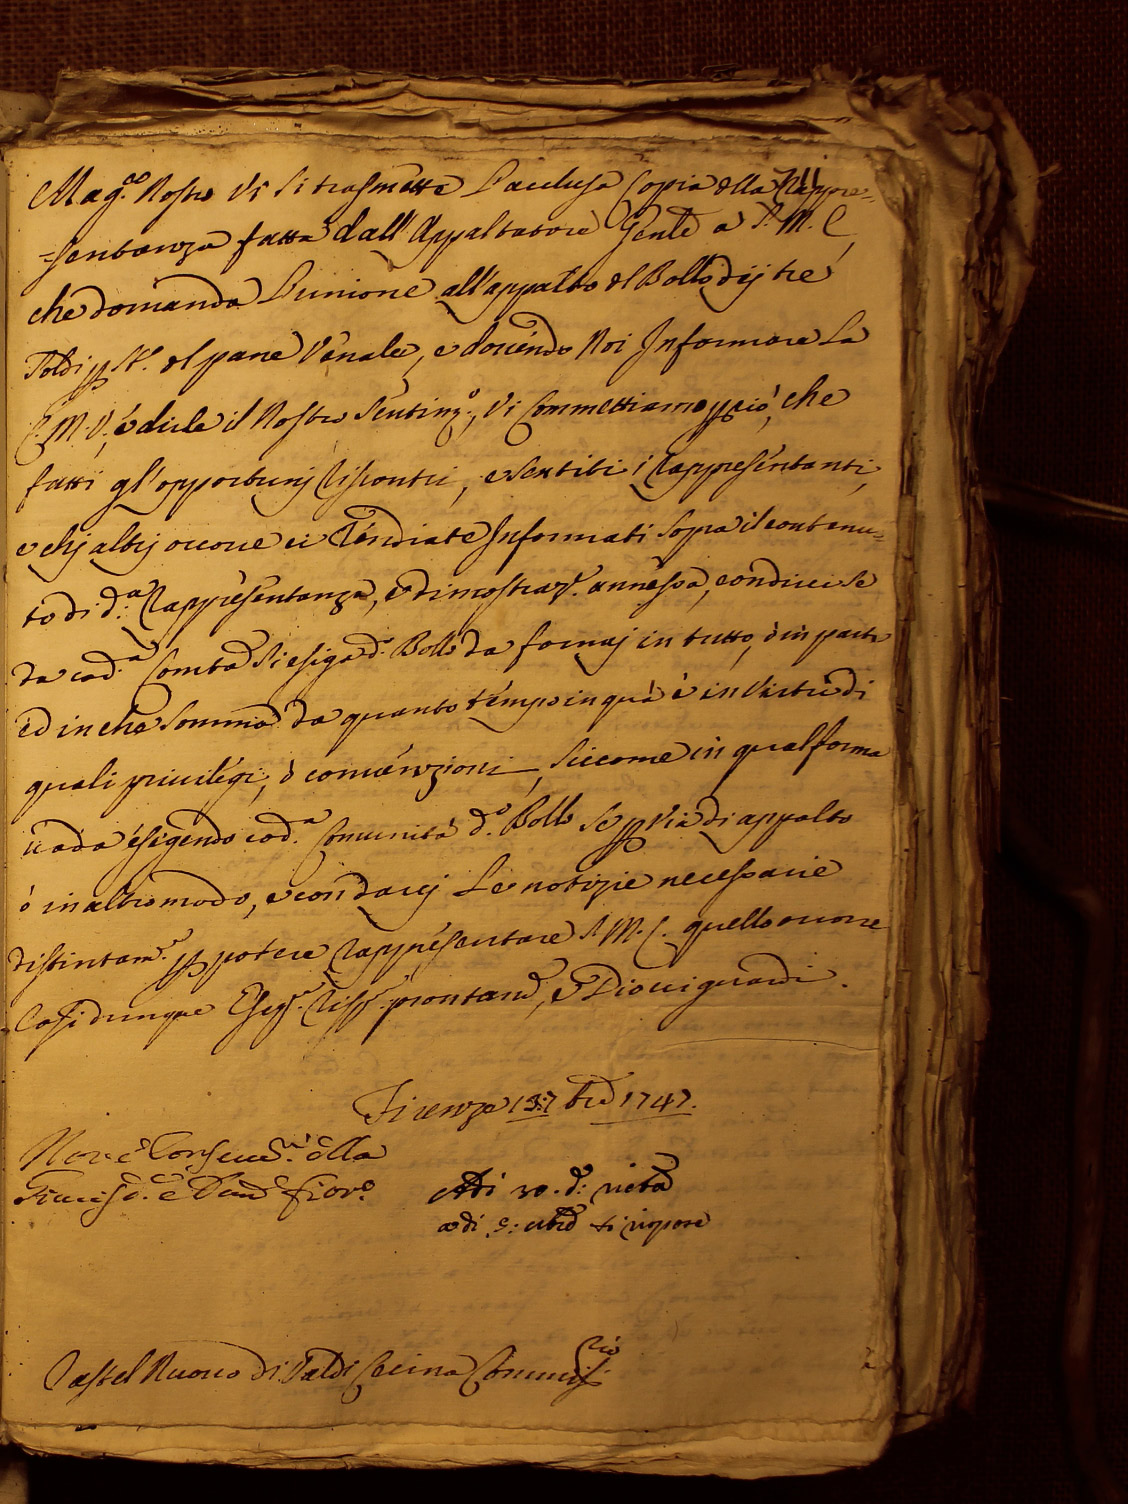 Mag.co Nostro Vi si trasmette l'acclusa Copia della Rappre=
=sentanza fatta dall'Appaltatore Genle a S. M. C,
che domanda l'unione all'appalto del Bollo dij tre
Soldi p St. del pane Venale, e dovendo Noi Informare La
C. M. S, e dirle il Nostro Sentim.o, Vi Commettiamo p ciò, che
fatti gl'opportunj Riscontri, e sentiti i Rappresentanti,
e chj altrj occorre ci Rendiate Informati sopra il contenu=
to di d.a Rappresentanza, e dimostraz.e annessa, con dirci se
da cod.a Comtà si esiga d.o Bollo da fornaj in tutto, ò in parte
ed in che Somma da quanto tempo in quà è in Virtù di
quali privilegi, ò convenzioni, siccome in qual forma
vada esigendo cod.a Comunità d.o Bollo se p Via di appalto
ò in altro modo, e con darcj Le notizie necessarie
distintam.e p potere Rappresentare S. M. C. quello occorre
Così dunque Eseg.e Riss.e prontam, e Dio vi guardi.
Firenze 13: 7bre 1747.
Adi 20. d: vista
adi
Castel Nuovo di Val di Cecina Commiss.rio